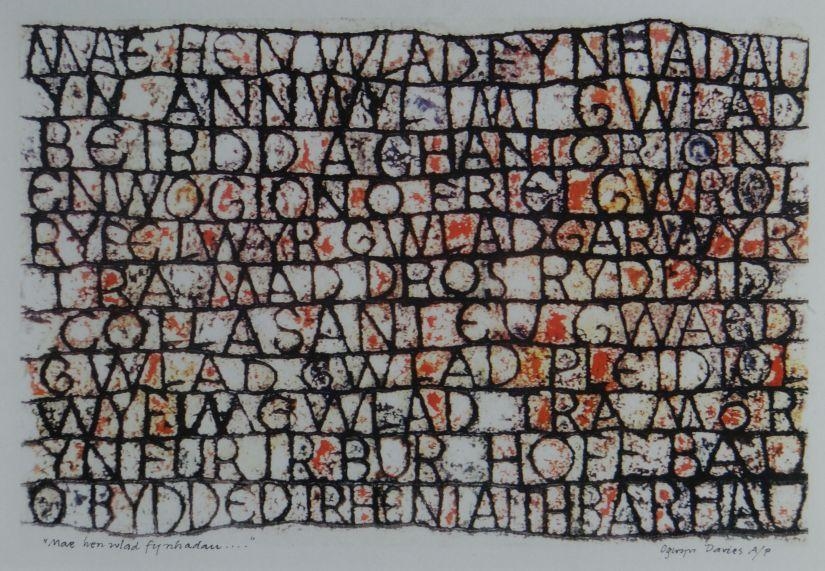 MAE HEN WLAD FY NHADAU
YN ANNWYL I MI GWLAD
BEIRDD A CHANTORION
ENWOGION O FRI EI GWROL
RYFELWYR GWLADGARWYR
TRA MAD DROS RYDDID
COLLASANT EU GWAED
GWLAD GWLAD PLEIDIOL
WYF I'M GWLAD TRA MOR
YN FUR I R BUR HOFF BAU
O BYDDED I R HEN IAITH BARHAU
"Mae hen wlad fy nhadau...."
Ogwyn Davies A/P